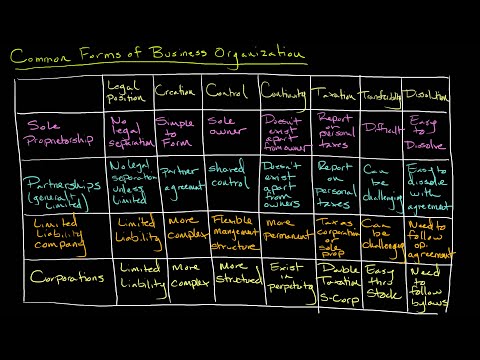 Common Forms of Business Organization
Legal Position
Creation
Control
Continuity
Taxation
Transferability
Dissolution
Sole Proprietorship
No legal separation
Simple to Form
Sole owner
Doesn't exist apart from owner
Report on personal taxes
Difficult
Easy to Dissolve
Partnerships (general & limited)
No legal separation unless limited
partner agreement
shared control
Doesn't exist apart from owners
Report on personal taxes
Can be challenging
Easy to dissolve with agreement
Limited Liability company
Limited Liability
More complex
Flexible mangement structure
more permanent
Tax as corporation or sole prop
Can be challenging
Need to follow op. agreement
Corporations
Limited Liability
More complex
More Structured
Exist in perpetuity
Double Taxation S-Corp
Easy thru Stock
Need to follow bylaws